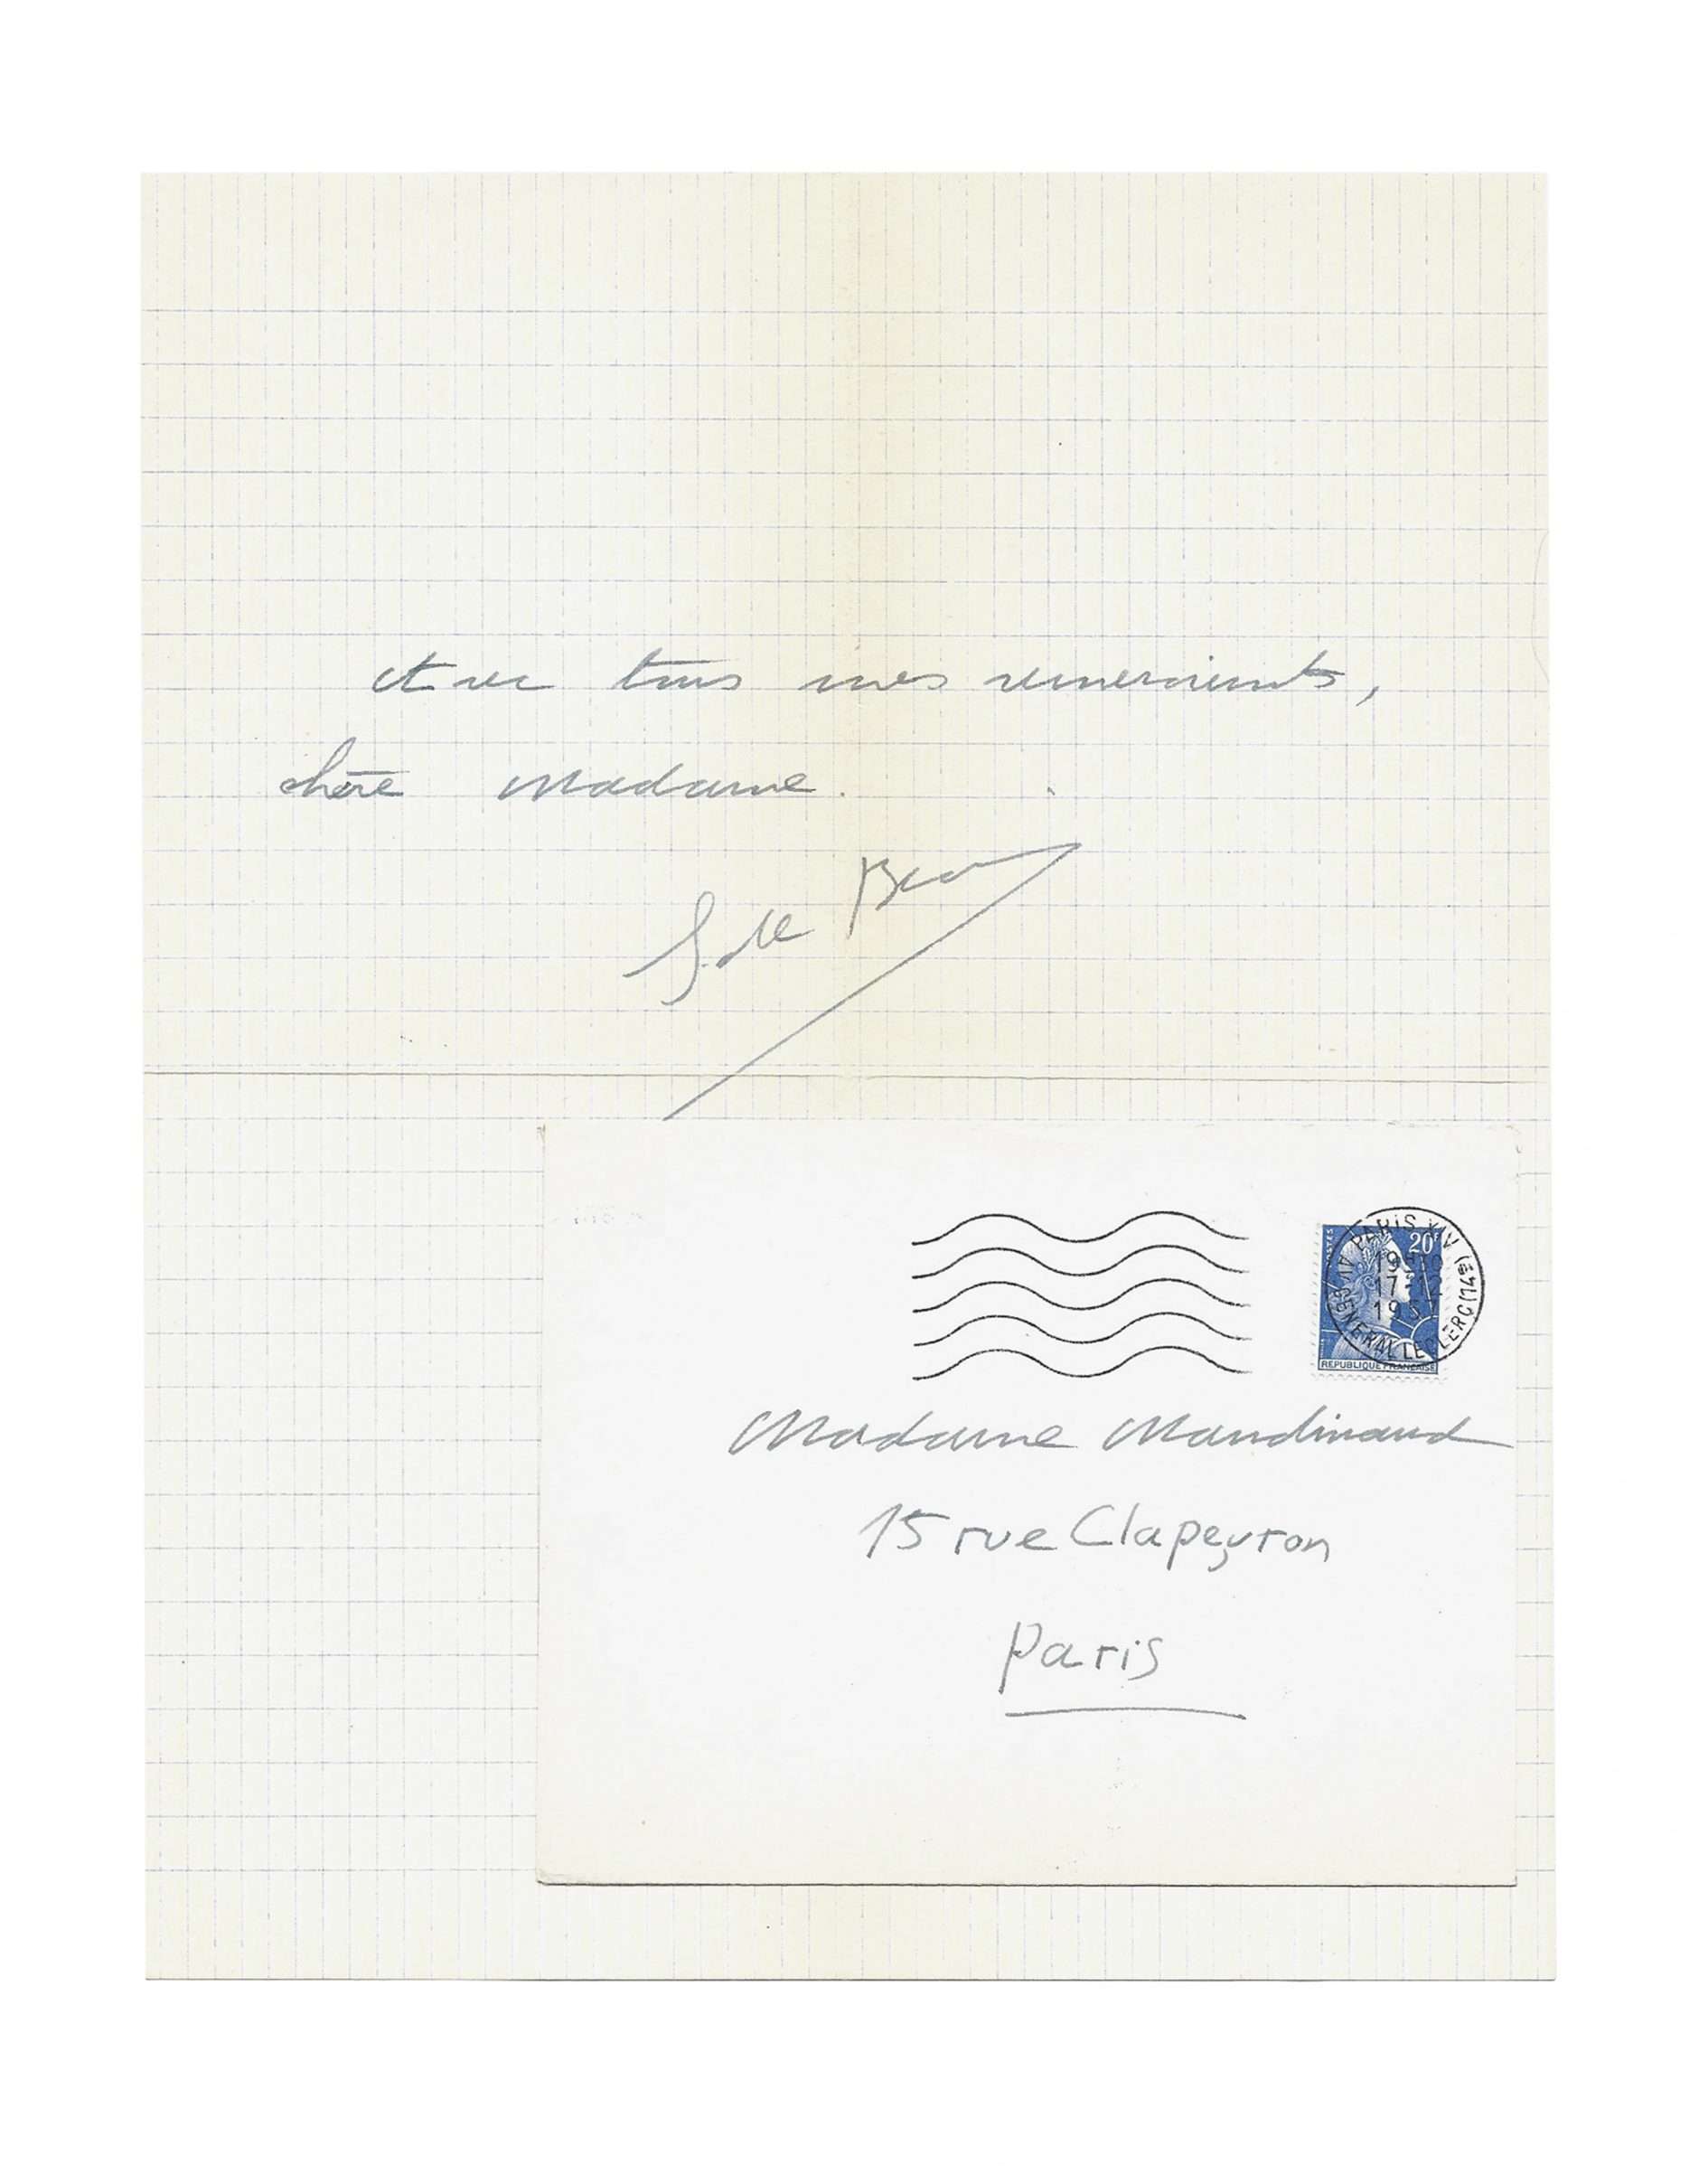 Avec tous mes remerciements,
chère Madame.
S. de Beauvoir
POSTES
20F
REPUBLIQUE FRANÇAISE
PARIS XIV
AV. GENERAL LECLERC (14e)
17-12
1957
Madame Mandinaud
15 rue Clapeyron
Paris